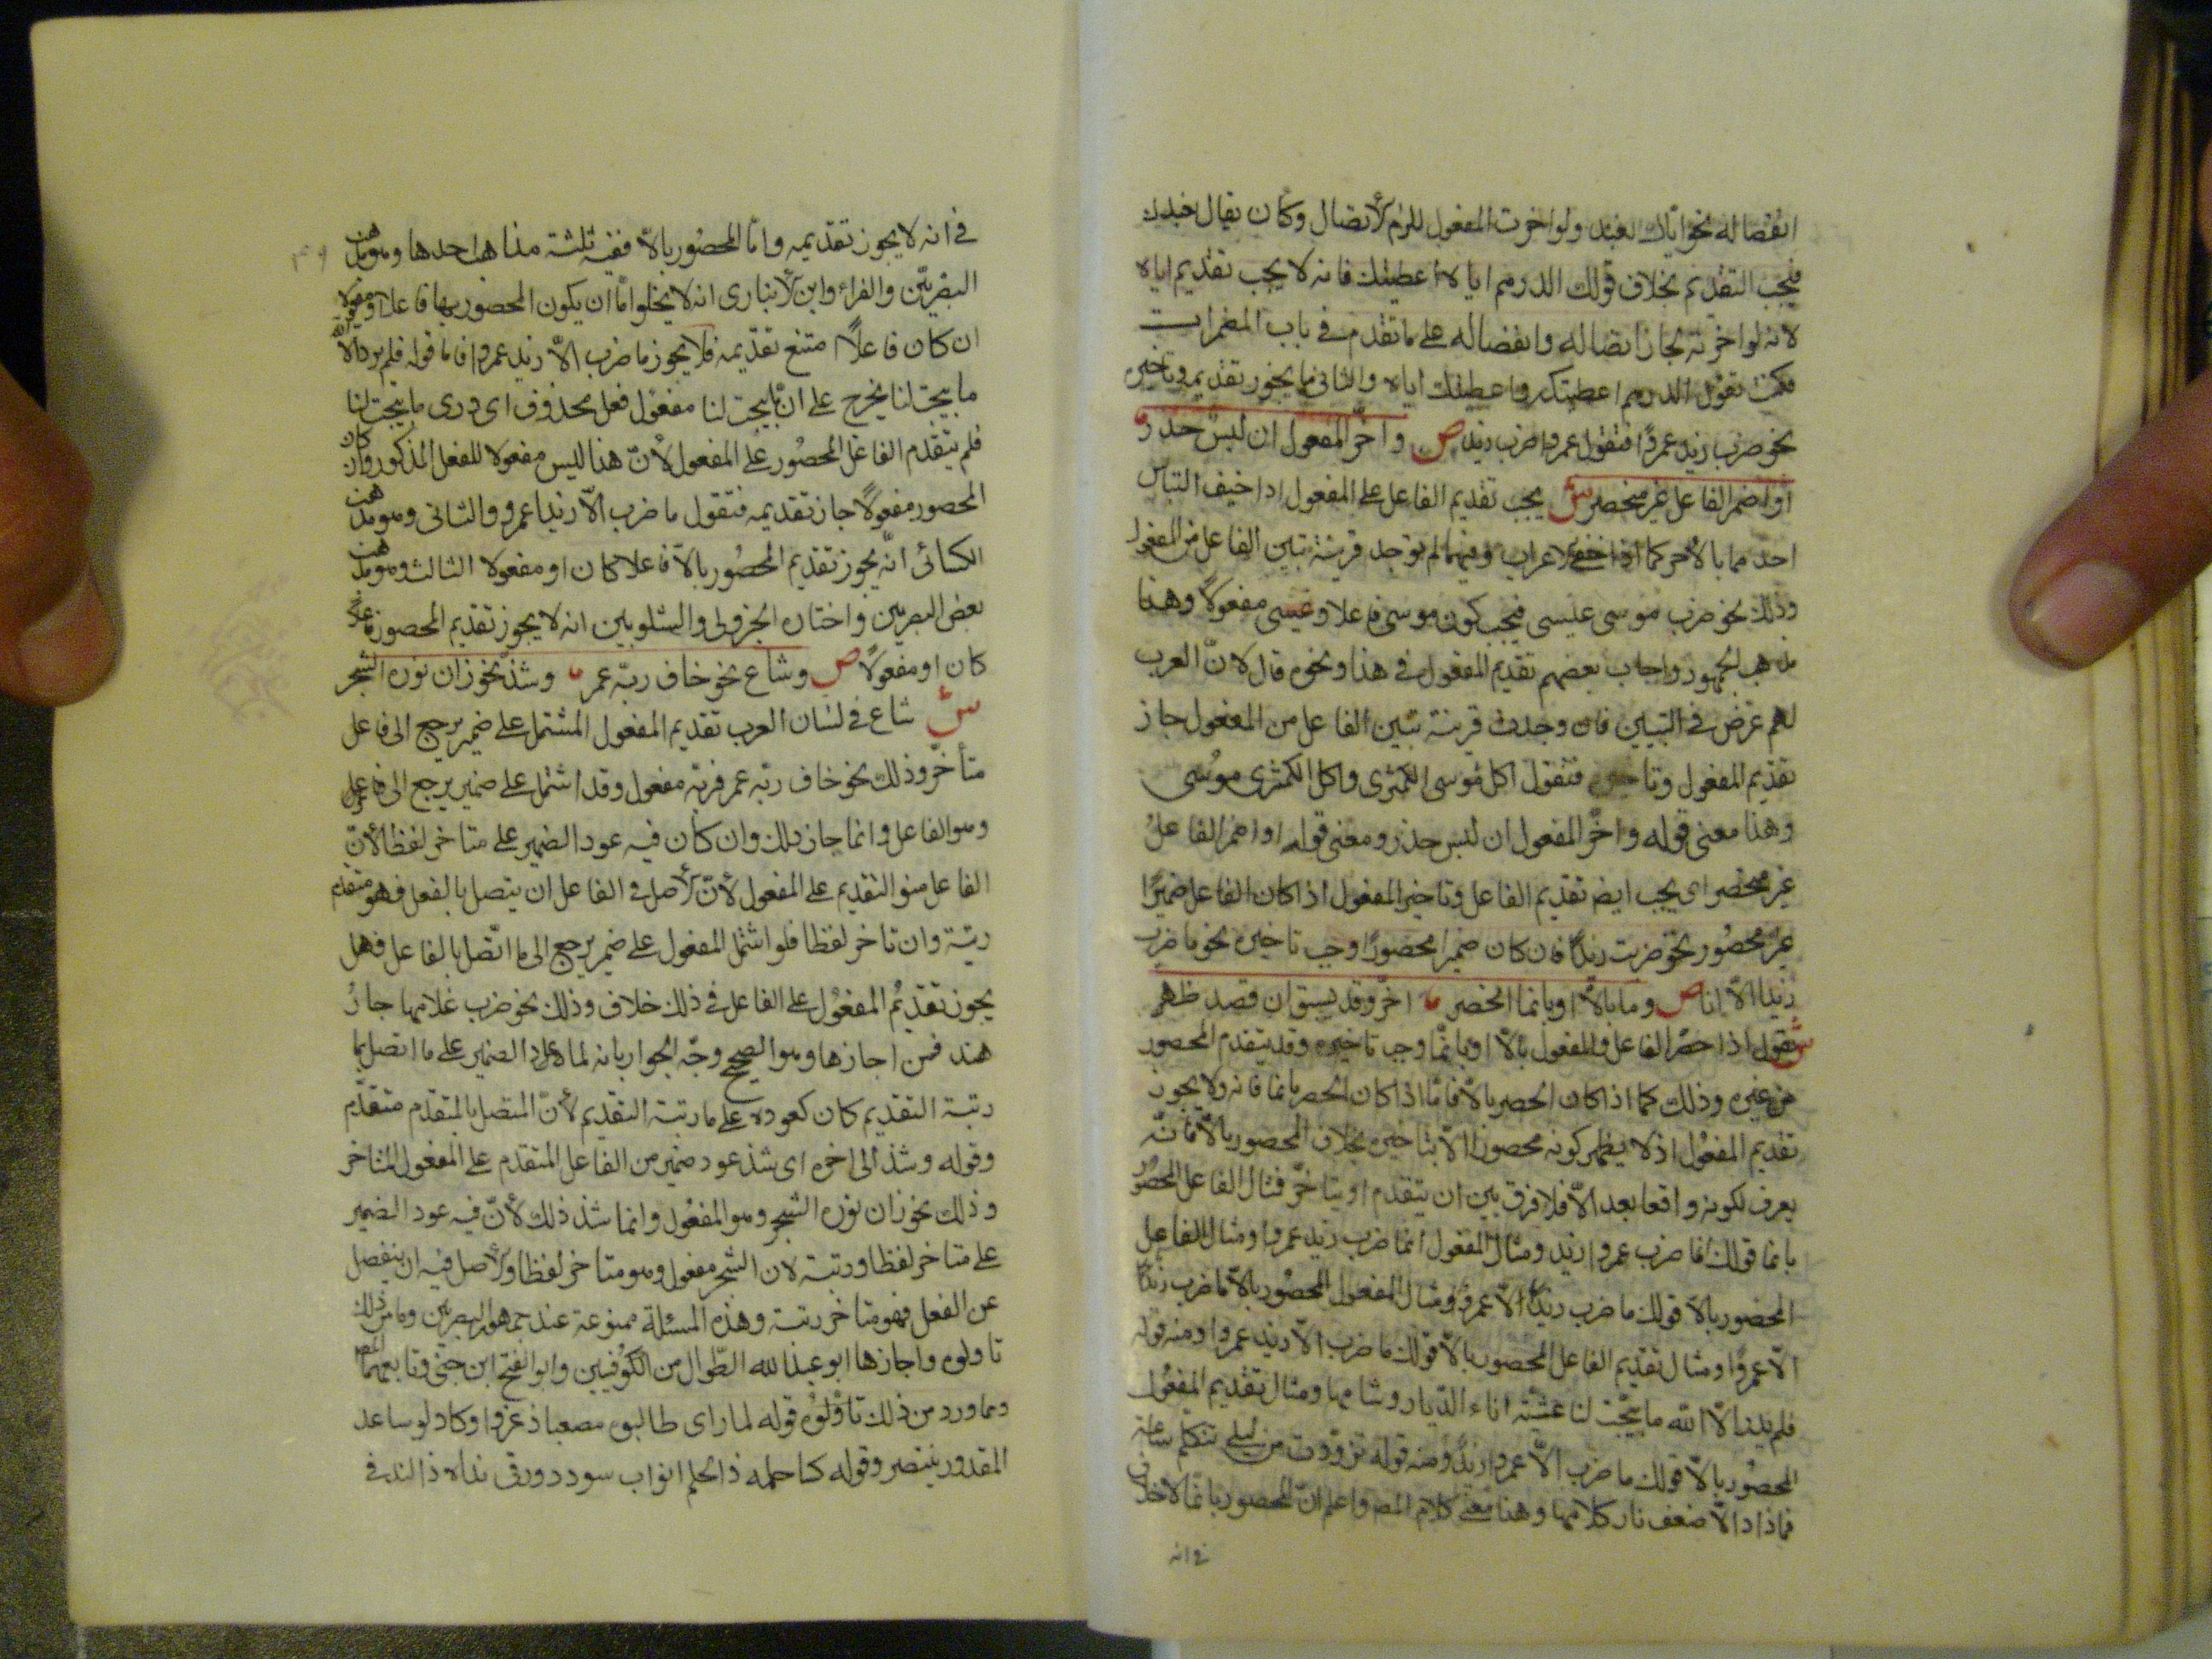 انفصاله نحو اياك نعبد ولو اخرت المفعول للزم الاتصال وكان يقال نعبدك
فيجب التقديم بخلاف قولك الدرهم اياه اعطيتك فانه لا يجب تقديم اياه
لانه لو اخرته لجاز اتصاله وانفصاله على ما تقدم في باب المضمرات
فكنت تقول الدرهم اعطيتكه واعطيتك اياه والثانى ما يجوز تقديمه وتاخيره
نحو ضرب زيد عمروا فتقول عمروا ضرب زيد ص واخر المفعول ان لبس حذر
او اضمر الفاعل غير منحصر ش يجب تقديم الفاعل على المفعول اذا خيف التباس
احدهما بالاخر كما اذا خفى الاعراب فيهما ولم توجد قرينة تبين الفاعل من المفعول
وذلك نحو ضرب موسى عيسى فيجب كون موسى فاعلا وعيسى مفعولا وهذا
مذهب الجمهور واجاب بعضهم تقديم المفعول في هذا ونحوه قال لان العرب
لهم غرض في التبيين فان وجدت قرينة تبين الفاعل من المفعول جاز
تقديم المفعول وتاخيره فتقول اكل موسى الكمثرى واكل الكمثرى موسى
وهذا معنى قوله واخر المفعول ان لبس حذر ومعنى قوله او اضمر الفاعل
غير منحصر اى يجب ايضا تقديم الفاعل وتاخير المفعول اذا كان الفاعل ضميرا
غير محصور نحو ضربت زيدا فان كان ضميرا محصورا وجب تاخيره نحو ما ضرب
زيدا الا انا ص وما بالا او بانما انحصر اخر وقد يسبق ان قصد ظهر
ش تقول اذا حصر الفاعل والمفعول بالا او بانما وجب تاخيره وقد يتقدم المحصور
من غيره وذلك كما اذا كان الحصر بالا فاما اذا كان الحصر بانما فانه ولا يجوز
تقديم المفعول اذ لا يظهر كونه محصورا الا بتاخيره بخلاف المحصور بالا فانه
يعرف لكونه واقعا بعد الا فلا فرق بين ان يتقدم او يتاخر فمثال الفاعل المحصور
بانما قولك انما ضرب عمروا زيد ومثال المفعول انما ضرب زيد عمروا ومثال الفاعل
المحصور بالا قولك ما ضرب زيدا الا عمرو ومثال المفعول المحصور بالا ما ضرب زيد
الا عمروا ومثال تقديم الفاعل المحصور بالا قولك ما ضرب الا زيد عمروا ومنه قوله
فلم يدر الا الله ما هيجت لنا عشية اناء الديار وشامها ومثال تقديم المفعول
المحصور بالا قولك ما ضرب الا عمروا زيد ومنه قوله تزودت من ليلى بتكلم ساعة
فما زاد الا ضعف نار كلامها وهذا معنى كلام المصـ واعلم ان المحصور بانما لا خلاف
في انه
في انه لا يجوز تقديمه واما المحصور بالا ففيه ثلثة مذاهب احدها وهو مذهب
البصريين والفراء وابن الانبارى انه لا يخلوا اما ان يكون المحصور بها فاعلا او مفعولا
ان كان فاعلا امتنع تقديمه فلا يجوز ما ضرب الا زيد عمروا فاما قوله فلم يدر الا الله
ما هيجت لنا يخرج على ان ما هيجت لنا مفعول فعل محذوف اى درى ما هيجت لنا
فلم يتقدم الفاعل المحصور على المفعول لان هذا ليس مفعولا للفعل المذكور وان كان
المحصور مفعولا جاز تقديمه فتقول ما ضرب الا زيدا عمرو والثانى وهو مذهب
الكسائى انه يجوز تقديم المحصور بالا فاعلا كان او مفعولا الثالث وهو مذهب
بعض البصريين واختاره الجزولى والشلوبين انه لا يجوز تقديم المحصور فاعلا
كان او مفعولا ص وشاع نحو خاف ربه عمر وشذ نحو زان نوره الشجر
ش شاع في لسان العرب تقديم المفعول المشتمل على ضمير يرجع الى فاعل
متأخر وذلك نحو خاف ربه عمر فربه مفعول وقد اشتمل على ضمير يرجع الى عمر
وهو الفاعل وانما جاز ذلك وان كان فيه عود الضمير على متاخر لفظا لان
الفاعل منو التقديم على المفعول لان الاصل في الفاعل ان يتصل بالفعل فهو متقدم
رتبة وان تاخر لفظا فلو اشتمل المفعول على ضمير يرجع الى ما اتصل بالفاعل فهل
يجوز تقديم المفعول على الفاعل في ذلك خلاف وذلك نحو ضرب غلامها جار
هند فمن اجازها وهو الصحيح وجه الجواز بانه لما عاد الضمير على ما اتصل بما
رتبة التقديم كان كعوده على ما رتبة التقديم لان المتصل بالمتقدم متقدم
وقوله وشذ الى اخره اى شذ عود ضمير من الفاعل المتقدم على المفعول المتاخر
وذلك نحو زان نوره الشجر وهو المفعول وانما شذ ذلك لان فيه عود الضمير
على متاخر لفظا ورتبة لان الشجر مفعول وهو متاخر لفظا والاصل فيه ان ينفصل
عن الفعل فهو متاخر رتبة وهذه المسئلة ممنوعة عند جمهور البصريين وما من ذلك
تاولوه واجازها ابو عبد الله الطوال من الكوفيين وابو الفتح ابن جنى وتابعهما المصـ
ومما ورد من ذلك تاولوه قوله لما راى طالبوه مصعبا ذعروا وكاد لو ساعد
المقدور ينتصر وقوله كسا حلمه ذا الحلم اثواب سودد ورقى نداه ذا الندى في